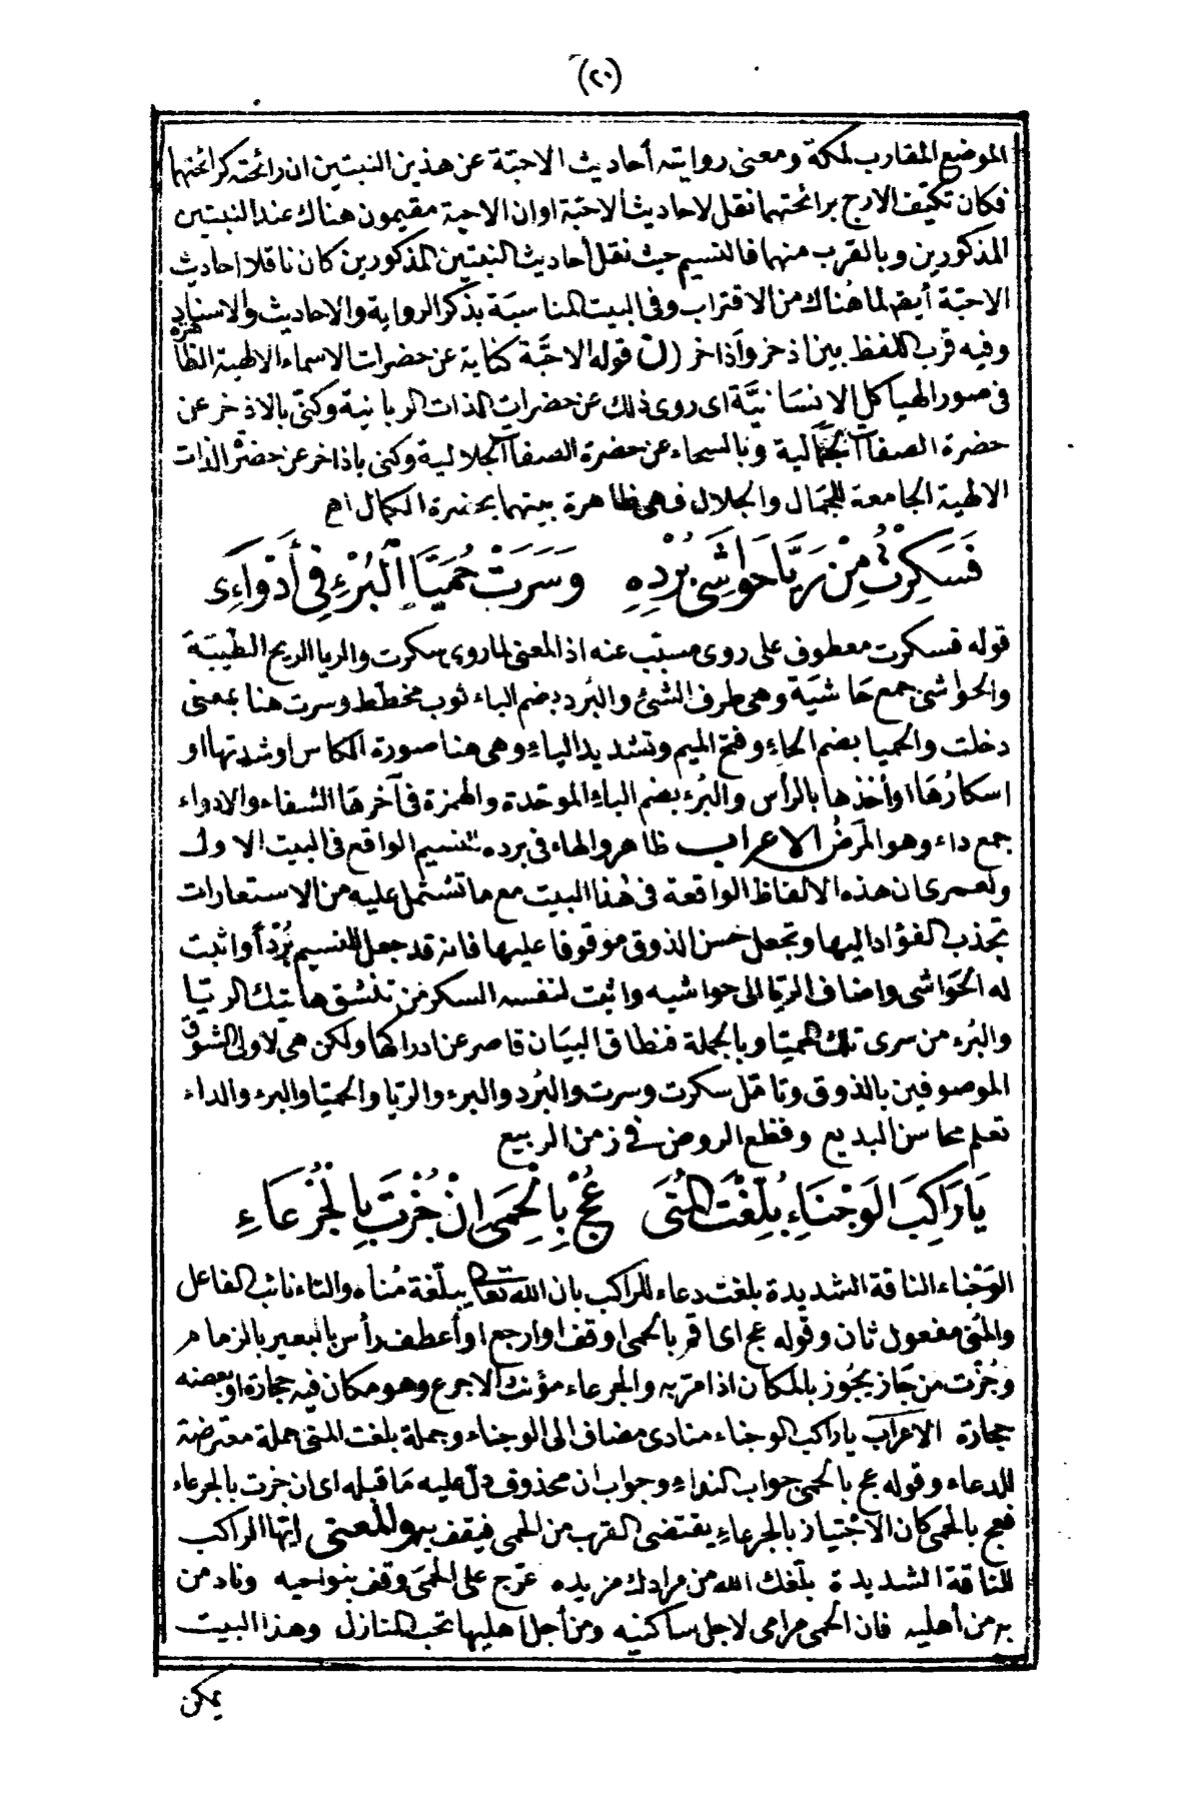 (٢٠)
الموضع المقارب لمكة ومعنى روايته أحاديث الاحبّة عن هذين النبتين ان رائحته كرائحتهما
فكان تكيّف الارج برائحتهما نقل لاحاديث الاحبّة او ان الاحبة مقيمون هناك عند النبتين
المذكورين وبالقرب منهما فالنسيم حيث نقل أحاديث النبتين المذكورين كان ناقلا احاديث
الاحبّة أيضا لما هُناك من الاقتراب وفى البيت المناسبَة بذكر الرواية والاحاديث والاسناد
وفيه قرب اللفظ بين اذخر وأذاخر (ن) قوله الاحبَّة كناية عن حضرات الاسماء الالهية الظاهرة
فى صور الهياكل الانسَانيَّة اى روى ذلك عن حضرات الذات الربانية وكنّى بالاذخر عن
حضرة الصفات الجماليَة وبالسحاء عن حضرة الصفات الجلالية وكنى باذاخر عن حضرة الذات
الالهية الجامعة للجمَال والجلال فهى ظاهرة بينهما بحضرة الكمال اهـ
فَسَكِرْتُ مِنْ رَيَّا حَوَاشِى بُرْدِهِ وَسَرَتْ حُمَيَّا الْبُرْءِ فِى أَدْوَاءِى
قوله فسكرت معطوف على روى مسبّب عنه اذ المعنى لما روى سكرت والريا الريح الطّيبَة
والحواشى جمع حَاشيَة وهى طرف الشئ والبُرد بضم الباء ثوب مخطّط وسرت هنا بمعنى
دخلت والحميا بضم الحاء وفتح الميم وتشديد الياء وهى هنا صورة الكاس او شدتها او
اسكارُهَا او أخذها بالرأس والبُرء بضم الباء الموحّدة والهمزة فى آخرها الشفاء والادواء
جمع داء وهو المرَضُ الاعراب ظاهر والهاء فى برده للنسيم الواقع فى البيت الاول
ولعمرى ان هذه الالفاظ الواقعة فى هٰذا البيت مع ما تشتمل عليه من الاستعارات
تجذب الفؤاد اليها وتجعل حسن الذوق موقوفا عليها فانه قد جعل للنسيم بُرْدأ واثبت
له الحَوَاشى واضاف الريا الى حواشيه واثبت لنفسه السكر من تنشق هاتيك الريّا
والبُرء من سرى تلك الحميّا وبالجملة فنطاق البيَان قاصر عن ادراكها ولكن هى لاولى الشوق
الموصوفين بالذوق وتامّل سكرت وسرت والبُرد والبرء والريّا والحميّا والبرء والداء
تعلم محاسن البديع وقطع الروض فى زمن الربيع
يَا رَاكِبَ الوَجْنَاءِ بُلِّغْتَ المُنَى عُجْ بِالْحِمَى اِنْ جُزْتَ بِالْجَرْعَاءِ
الوَجْناء الناقة الشديدة بلغت دعاء للراكب بان الله تعالى يبلّغه مُناه والتاء نائب الفاعل
والمُنى مفعول ثان وقوله عج اى اقم بالحمى او قف او ارجع او أعطف رأس البعير بالزمام
وجُزْت من جَاز يجُوز بالمكان اذا مرّ به والجرعاء مؤنث الاجرع وهو مكان فيه حجارة او بعضه
حجارة الاعرَاب ياراكب الوجناء منادى مضاف الى الوجناء وجملة بلغت المنى جملة معترضة
للدعاء وقوله عج بالحمى جواب النداء وجواب ان محذوف دلّ عليه مَا قبله اى ان جزت بالجرعاء
فعج بالحمى كان الاجْتياز بالجرعاء يقتضى القرب من الحمى فيقف به والمعنى ايّها الراكب
للناقة الشديدة بلّغك الله من مرادك مزيده عرّج على الحمَى وقف بنواحيه وناد من
به من أهليه فان الحمى مرامى لاجل ساكنيه ومن أجل اهليها تحب المنازل وهذا البيت
يمكن